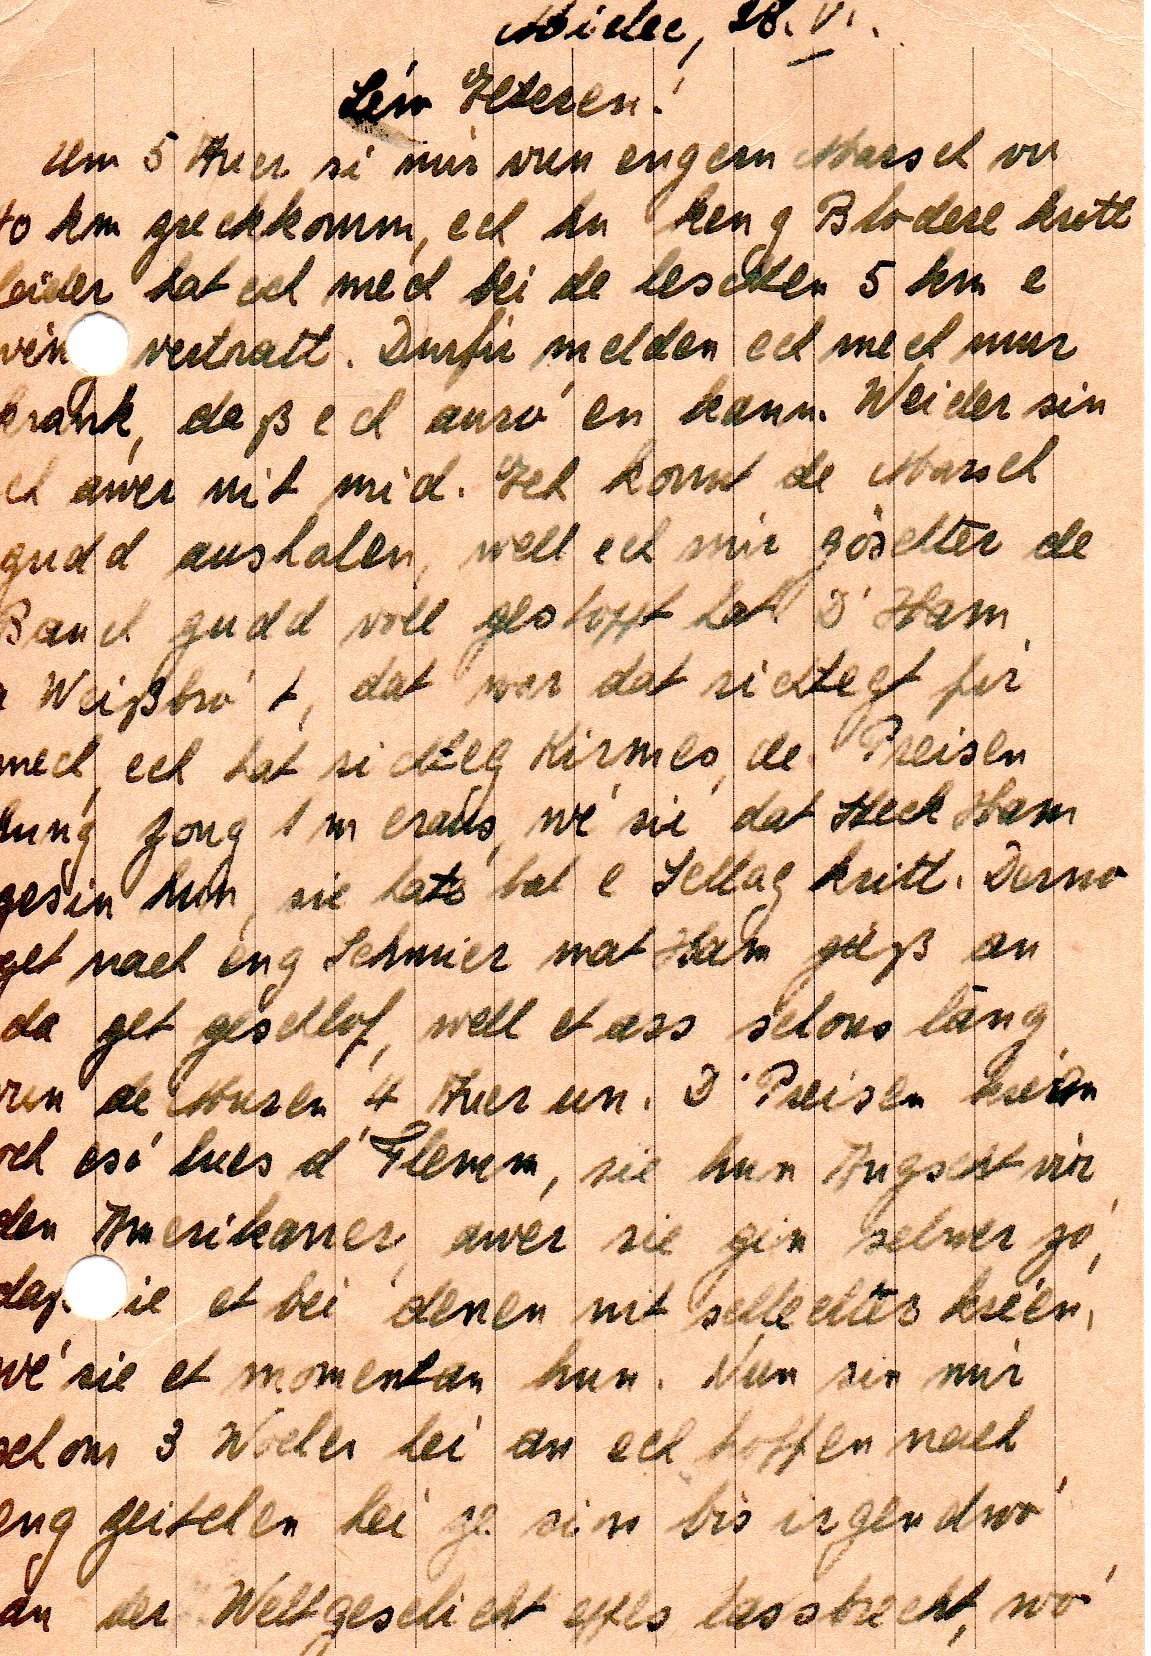 Mielec, 28. VI.
Léiw Elteren!
Um 5 Auer si mir vun engem Marsch vu
40 km zreckkomm, ech hu keng Blodere kritt
leider hat ech mech bei de leschten 5 km e
wéin vertratt. Dufir melden ech mech mur
krank, daß ech auro'en kann. Weider sin
ech awer nit mid. Ech konnt de Marsch
gudd aushalen, well ech mir göschter de
Bauch gudd voll gestofft hat D'Ham
a Weißbro't, dat war dat richtegt fir
mech, ech hat richteg Kirmes, de Preisen
hung zong 1 m eraus, wé sie dat Steck Ham
gesin hun, sie hate bal e Schlag kritt. Derno
get nach eng Schmier mat Ham gäß an
da get geschlof, well et ass schons läng
vun de Muren 4 Auer un. D'Preisen kréien
och eso' lues d'Flemm, sie hun Angscht vir
den Amerikaner, awer sie gin selwer zo',
daß sie et bei denen nit schlechter kréen,
wé sie et momentan hun. Nun sin mir
schons 3 Wochen hei an ech hoffen nach
eng Zeitchen hei ze sin bis irgendwo'
an der Weltgeschicht eppes lassbrecht, wo'